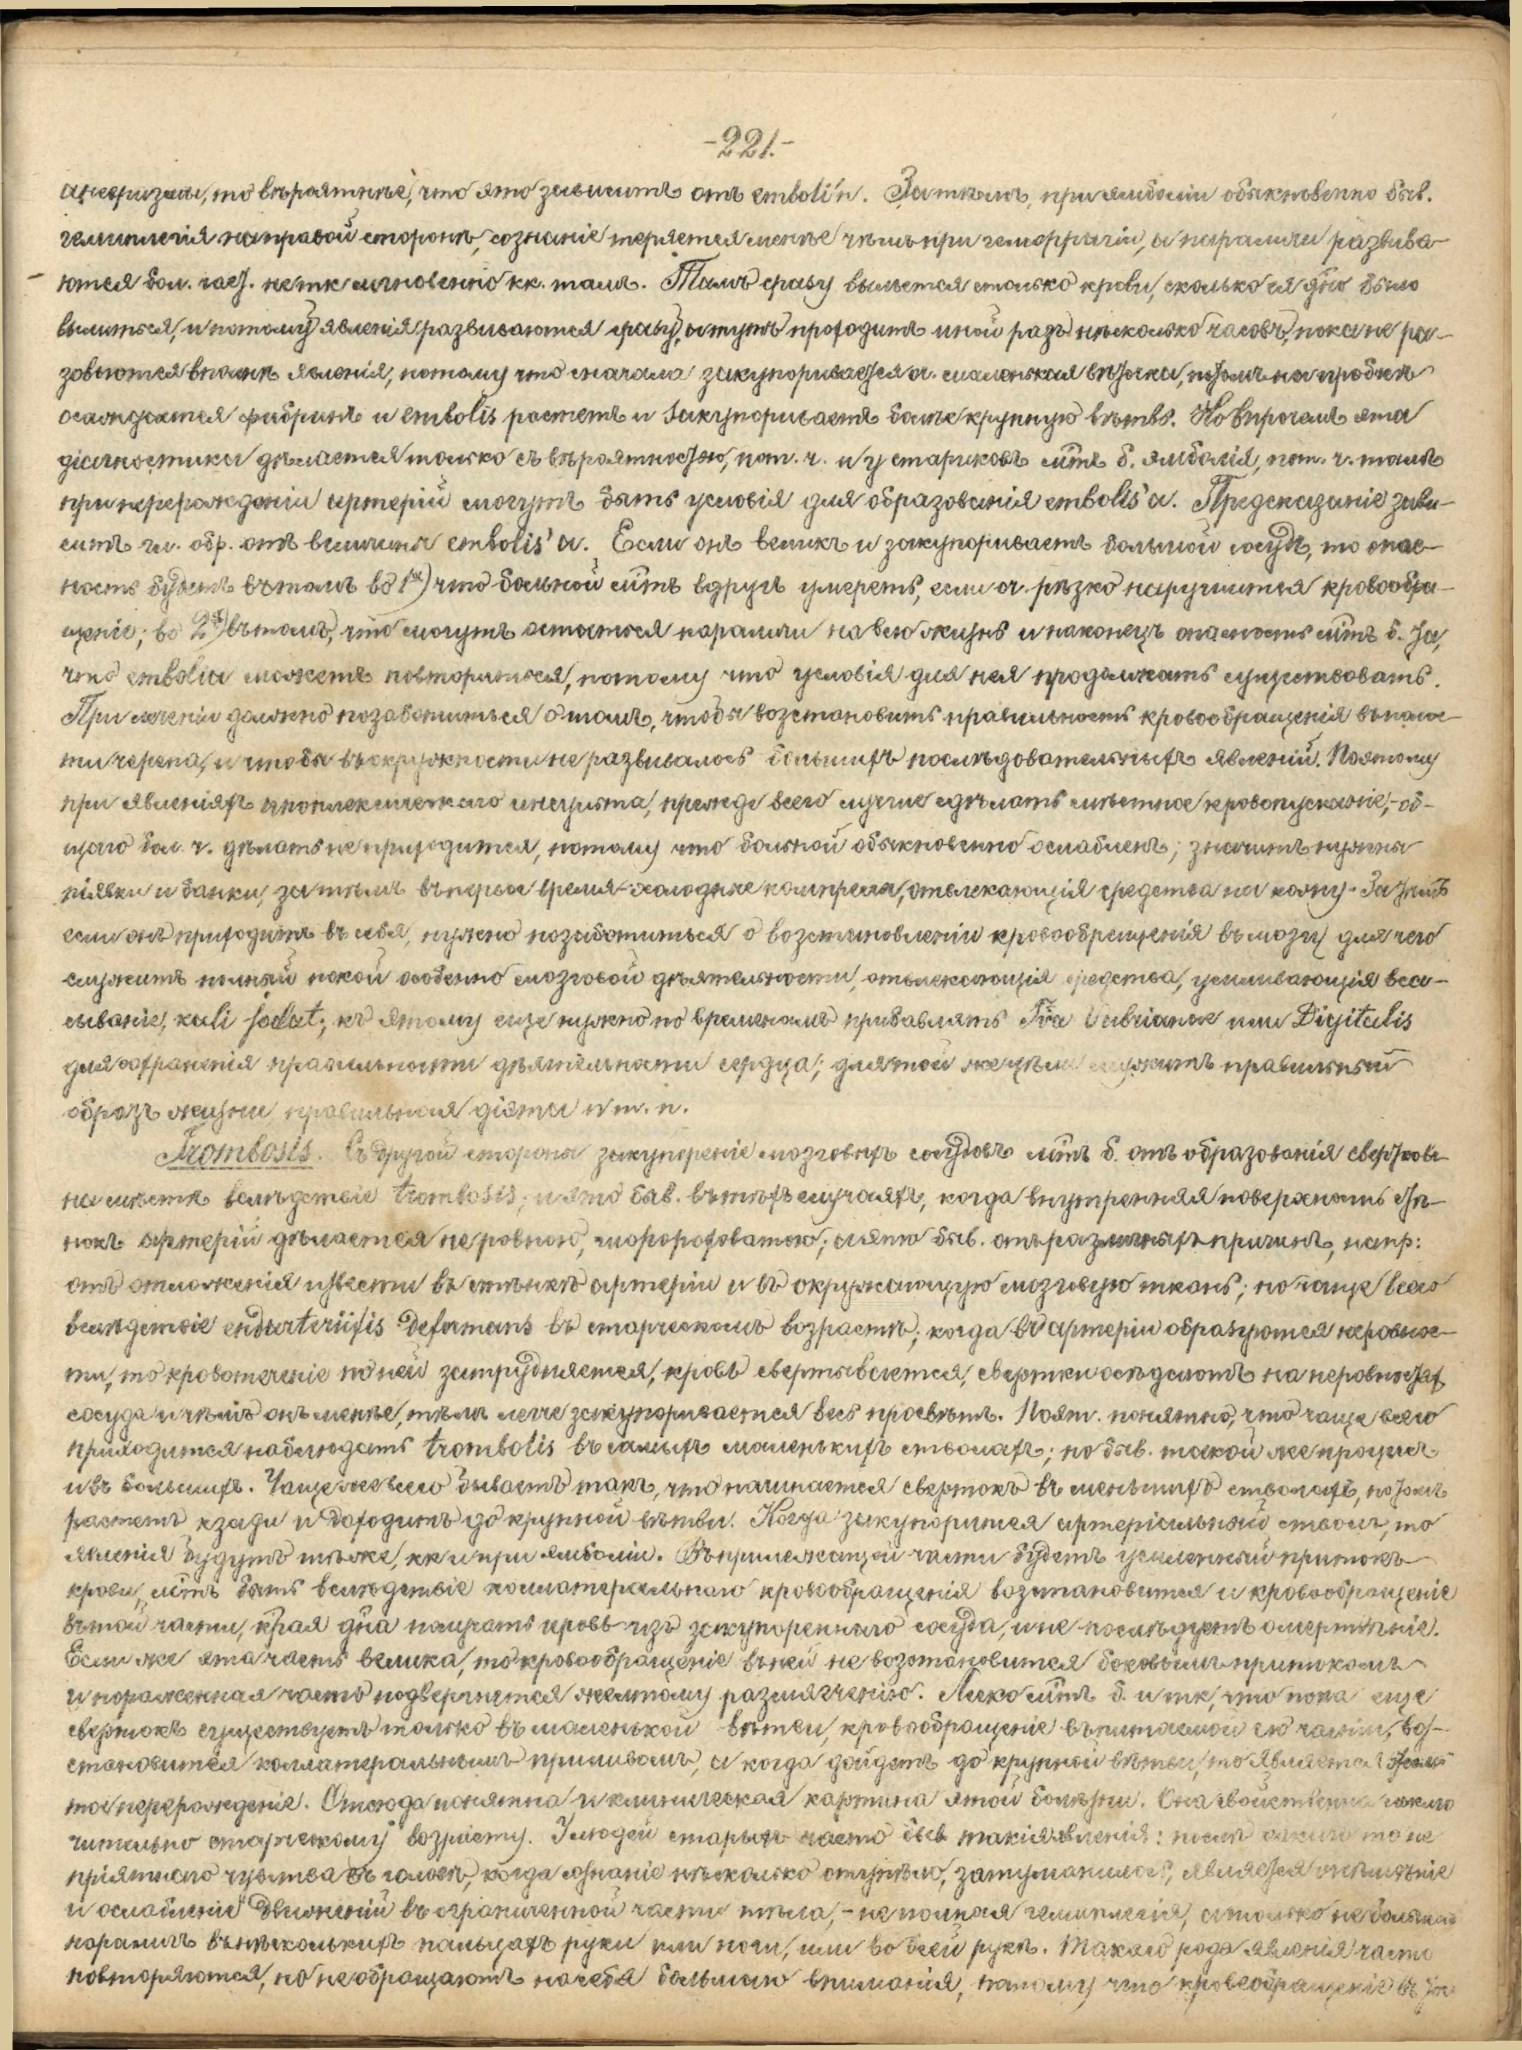 -221.-
аневризмы, то вѣроятнѣе, что это зависитъ отъ emboli'и. Затѣмъ, при эмболіи обыкновенно быв.
гемиплегія на правой сторонѣ, сознаніе теряется менѣе чѣмъ при геморрагіи, а параличи развива-
ются бол. част. не тк мгновенно кк. тамъ. Тамъ сразу выльется столько крови, сколько ея дно было
вылиться, и потому явленія развиваются сразу, а тутъ проходитъ иной разъ нѣсколько часовъ, пока не ра-
зовьются вполнѣ явленія, потому что сначала закупоривается маленькая вѣточка, потомъ на пробкѣ
осаждается фибринъ и embolis растетъ и закупориваетъ болѣе крупную вѣтвь. Но впрочемъ эта
діагностика дѣлается только съ вѣроятностью, пот. ч. и у стариковъ мтъ б. эмболія, пот. ч. тамъ
при перерожденіи артерій могутъ быть условія для образованія embolis'а. Предсказаніе зави-
ситъ гл. обр. отъ величины embolis'а. Если онъ великъ и закупориваетъ большой сосудъ, то опас-
ность будетъ въ томъ во 1хъ) что больной мтъ вдругъ умереть, если оч. рѣзко нарушится кровообра-
щеніе; во 2хъ) въ томъ, что могутъ остаться параличи на всю жизнь и наконецъ опасность мтъ б. та,
что emboliа можетъ повториться, потому что условія для нея продолжатъ существовать.
При леченіи должно позаботиться о томъ, чтобы возстановить правильность кровообращенія въ полос-
ти черепа, и чтобы въ окружности не развивалось большихъ послѣдовательныхъ явленій. Поэтому
при явленіяхъ апоплексическаго инсульта, прежде всего лучше сдѣлать мѣстное кровопусканіе, - об-
щаго бол. ч. дѣлать не приходится, потому что больной обыкновенно ослабленъ; значитъ нужны
піявки и банки, затѣмъ въ первое время - холодные компрессы, отвлекающія средства на кожу. Затѣмъ
если онъ приходитъ въ себя, нужно позаботиться о возстановленіи кровообращенія въ мозгу для чего
служитъ полный покой особенно мозговой дѣятельности, отвлекающія средства, усиливающія вса-
сываніе, kali jodat; къ этому еще нужно по временамъ прибавлять Trа Valerianae или Digitalis
для сохраненія правильности дѣятельности сердца; для той же цѣли служитъ правильный
образъ жизни, правильная діэта и т. п.
Trombosis. Съ другой стороны закупореніе мозговыхъ сосудовъ мтъ б. отъ образованія свертковъ
на мѣстѣ вслѣдствіе trombosis; и это быв. въ тѣхъ случаяхъ, когда внутренняя поверхность стѣ-
нокъ артерій дѣлается неровною, шороховатою; а это быв. отъ различныхъ причинъ, напр:
отъ отложенія извести въ стѣнкѣ артеріи и въ окружающую мозговую ткань; но чаще всего
вслѣдствіе endarteriitis deformans въ старческомъ возрастѣ; когда въ артеріи образуются неровнос-
ти, то кровотеченіе по ней затрудняется, кровь свертывается, свертки осѣдаютъ на неровностях
сосуда и чѣмъ онъ менѣе, тѣмъ легче закупоривается весь просвѣтъ. Поэт. понятно, что чаще всего
приходится наблюдать trombolis въ самыхъ маленькихъ стволахъ; но быв. такой же процессъ
и въ большихъ. Чаще же всего бываетъ такъ, что начинается свертокъ въ меньшихъ стволахъ, потомъ
растетъ кзади и доходитъ до крупной вѣтви. Когда закупорится артеріальный стволъ, то
явленія будутъ тѣ же, кк и при эмболіи. Въ прилежащей части будетъ усиленный притокъ
крови, мтъ быть вслѣдствіе коллатеральнаго кровообращенія возстановится и кровообращеніе
въ той части, края дна получать кровь изъ закупореннаго сосуда, и не послѣдуетъ омертвѣніе.
Если же эта часть велика, то кровообращеніе въ ней не возстановится боковымъ притокомъ
и пораженная часть подвергнется желтому размягченію. Легко мтъ б. и тк, что пока еще
свертокъ существуетъ только въ маленькой вѣтви, кровообращеніе въ питаемой ею части, воз-
становится коллатеральнымъ приливомъ, а когда дойдетъ до крупной вѣтви, то является жел-
тое перерожденіе. Отсюда понятна и клиническая картина этой болѣзни. Она свойственна исклю-
чительно старческому возрасту. У людей старыхъ часто быв такія явленія: послѣ какого то не
пріятнаго чувства въ головѣ, когда сознаніе нѣсколько отупѣло, затуманилось, является онѣмѣніе
и ослабленіе движеній въ ограниченной части тѣла, - не полная гемиплегія, а только небольшой
параличъ въ нѣсколькихъ пальцахъ руки или ноги, или во всей рукѣ. Такаго рода явленія часто
повторяются, но не обращаютъ на себя большаго вниманія, потому что кровообращеніе въ